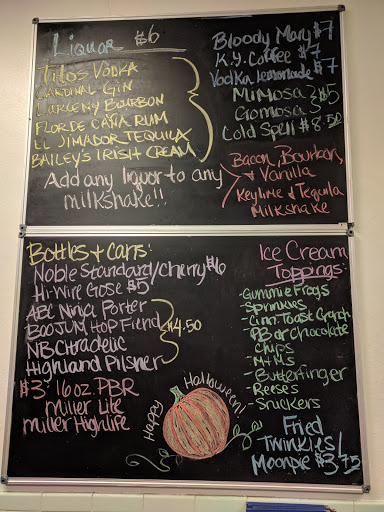 Liquor $6
Titos Vodka
Cardinal Gin
Larceny Bourbon
Flor de Caña Rum
El Jimador Tequila
Bailey's Irish Cream
Add any liquor to any
milkshake!!
Bloody Mary $7
K.Y. Coffee $7
Vodka lemonade $7
Mimosa
Cromosa
$5
Cold Spell $8.50
Bacon, Bourbon,
& Vanilla
Keylime & Tequila
Milkshake
Bottles + cans:
Noble Standard/Cherry $6
Hi-Wire Gose $5
ABC Ninja Porter
Boojum Hop Fiend
NB Citradelic
Highland Pilsner
$4.50
$3 16oz. PBR
Miller Lite
Miller Highlife
Happy Halloween!
Ice Cream
Toppings:
-Gummie Frogs
-Sprinkles
-Cinn. Toast Crunch
-PB or Chocolate
Chips
-M+Ms
-Butterfinger
-Reeses
-Snickers
Fried
Twinkies/
Moonpie $3.75